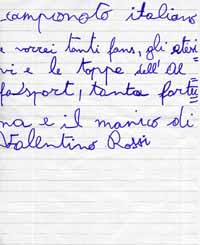 campionato italiano
e vorrei tanti fans, gli adesi
vi e le toppe dell'Al
fasport, tanta fortu
na e il manico di
Valentino Rossi